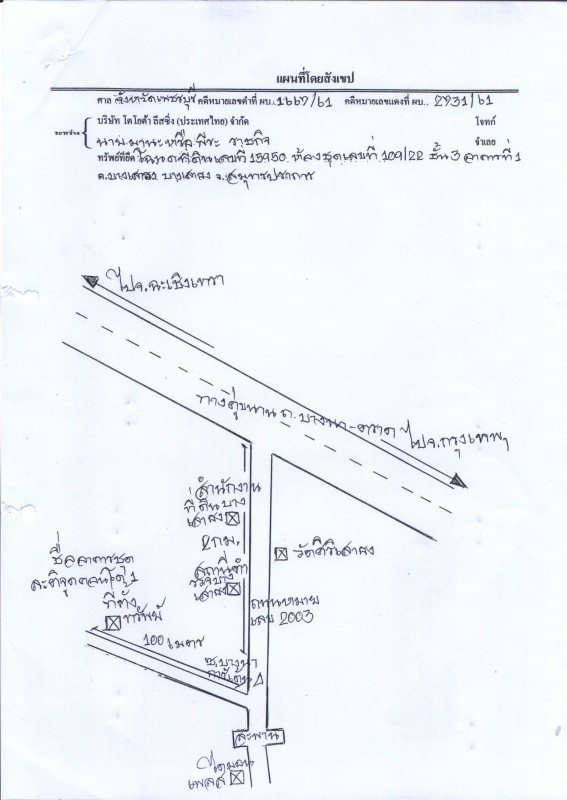 แผนที่โดยสังเขป
ศาล จังหวัดเพชรบุรี คดีหมายเลขดำที่ ผบ. 1667/61 คดีหมายเลขแดงที่ ผบ. 2931/61
ระหว่าง บริษัท โตโยต้า ลีสซิ่ง (ประเทศไทย) จำกัด โจทก์
ราชกิจ จำเลย
ทรัพย์ที่ยึด โฉนดที่ดินเลขที่ 15950 ห้องชุดเลขที่ 109/22 ชั้น 3 อาคารที่ 1
ต.บางเสาธง บางเสาธง จ.สมุทรปราการ
ไปจ.ฉะเชิงเทรา
ทางคู่ขนาน ถ. บางนา-ตราด ไปจ.กรุงเทพฯ
สำนักงาน
ที่ดินบาง
เสาธง
2 กม.
สถานีตำ
รวจบาง
เสาธง
วัดศิริเสาธง
ชื่ออาคารชุด
ที่ตั้ง
ทรัพย์
100 เมตร
ถนนหมาย
เลข 2003
ซ.บางนา
สะพาน